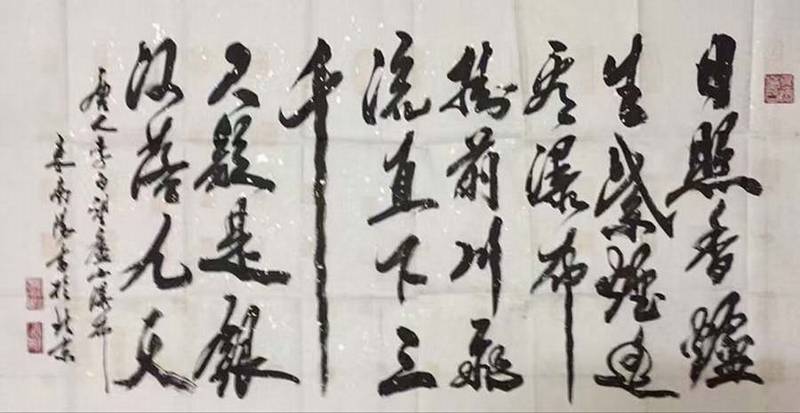 日照香爐
生紫煙遥
看瀑布
掛前川飛
流直下三
千
尺疑是銀
河落九天
唐人李白望廬山瀑布
書於北京